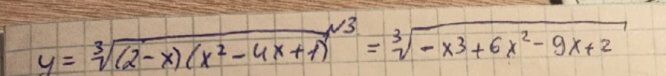 y = ∛((2-x)(x² - 4x + 1)) = ∛(-x3 + 6x² - 9x + 2)